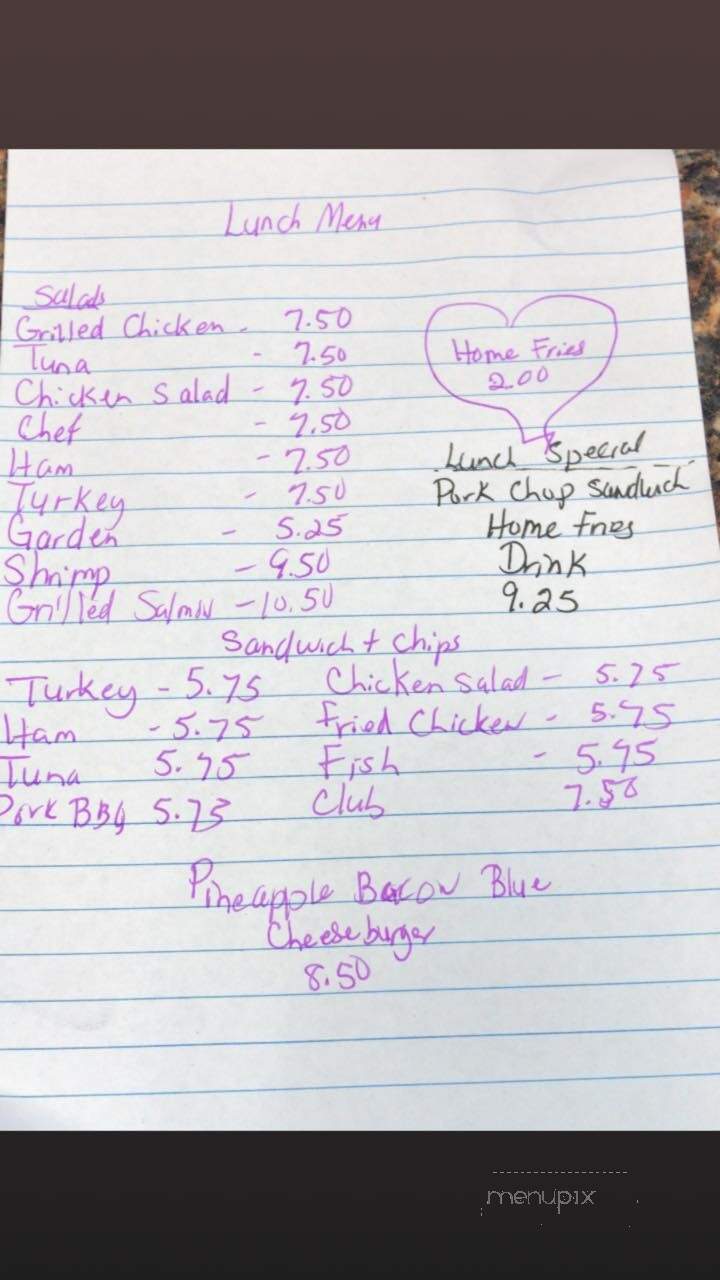 Lunch Menu
Salads
Grilled Chicken - 7.50
Tuna - 7.50
Chicken Salad - 7.50
Chef - 7.50
Ham - 7.50
Turkey - 7.50
Garden - 5.25
Shrimp - 9.50
Grilled Salmon - 10.50
Home Fries
2.00
Lunch Special
Pork Chop Sandwich
Home Fries
Drink
9.25
Sandwich + Chips
Turkey - 5.75
Ham - 5.75
Tuna 5.75
Pork BBQ 5.75
Chicken Salad - 5.75
Fried Chicken - 5.75
Fish - 5.75
Club 7.50
Pineapple Bacon Blue
Cheeseburger
8.50
menupix